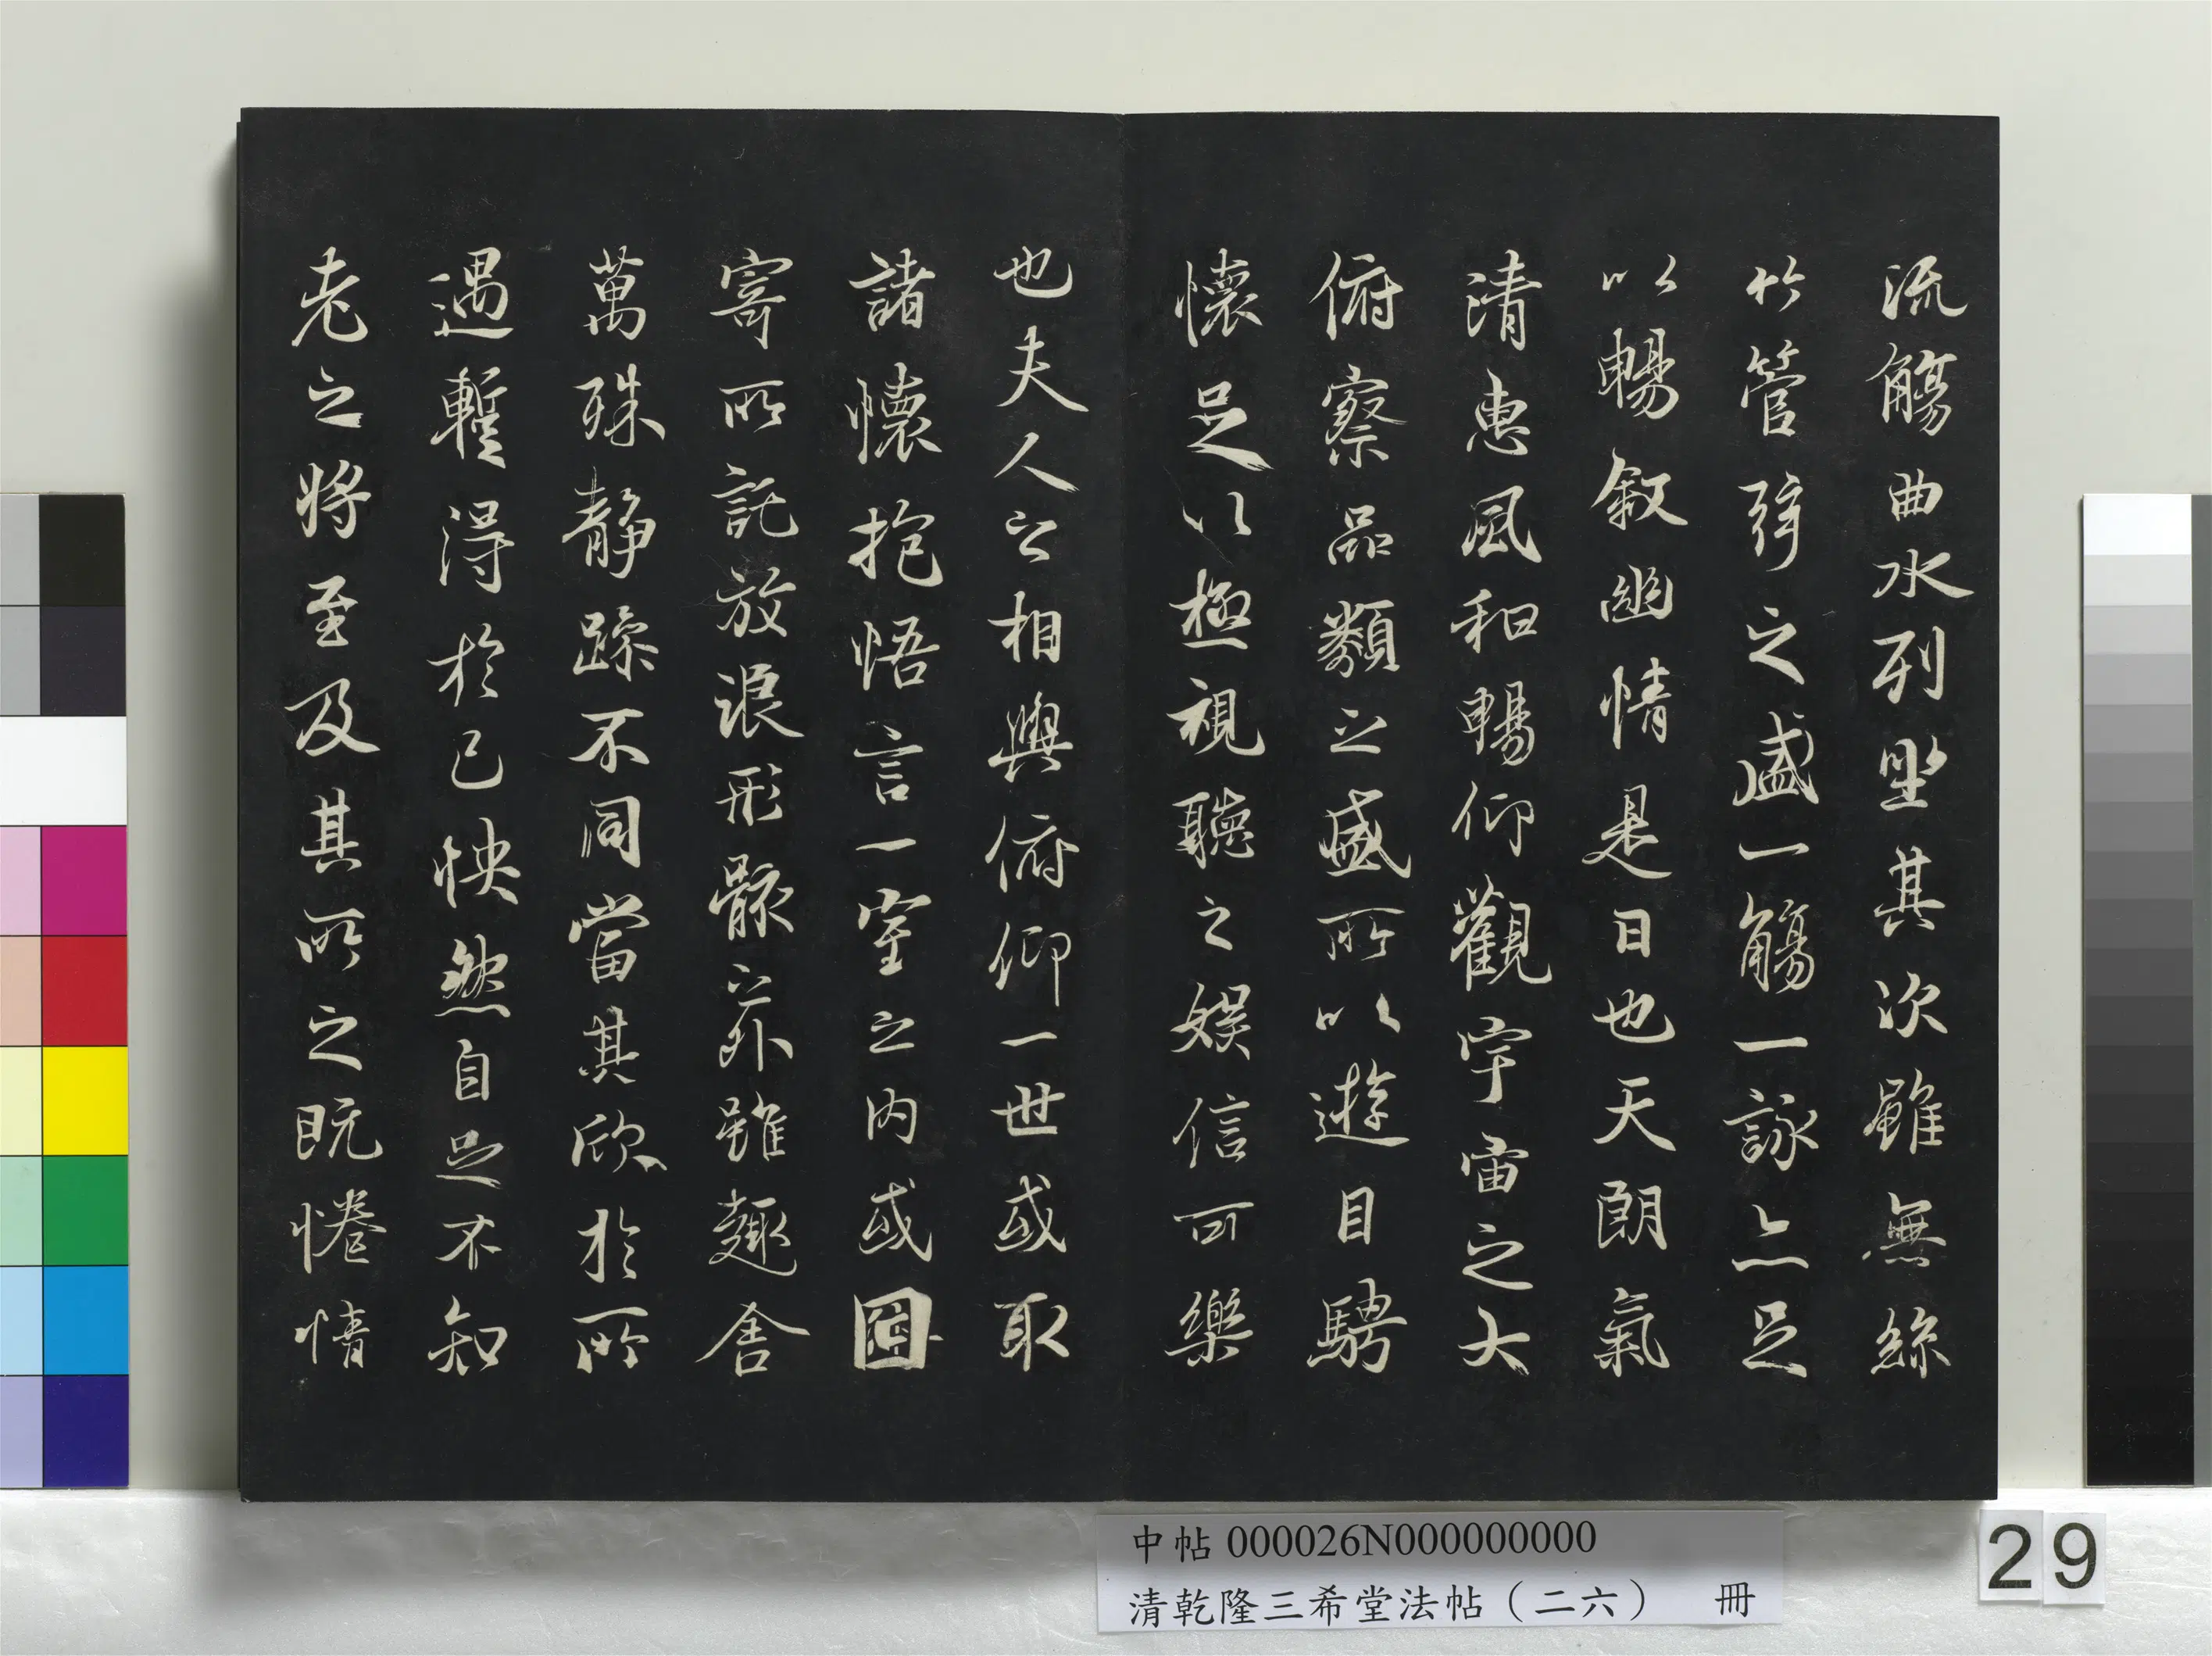 流觴曲水列坐其次雖無絲
竹管弦之盛一觴一詠亦足
以暢敘幽情是日也天朗氣
清惠風和暢仰觀宇宙之大
俯察品類之盛所以遊目騁
懷足以極視聽之娛信可樂
也夫人之相與俯仰一世或取
諸懷抱悟言一室之內或因
寄所託放浪形骸之外雖趣舍
萬殊靜躁不同當其欣於所
遇蹔得於己怏然自足不知
老之將至及其所之既惓情
中帖 000026N000000000
清乾隆三希堂法帖（二六） 冊
29